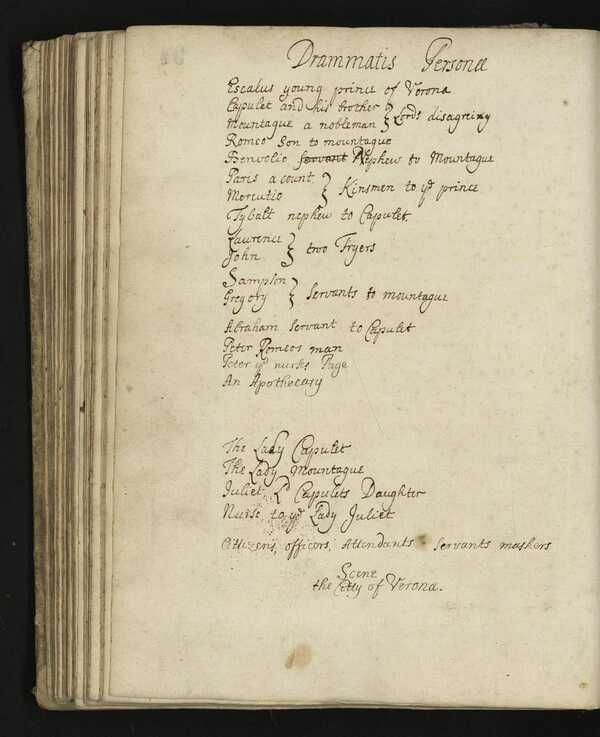 Drammatis Personæ
Escalus young prince of Verona
Capulet and his brother } Lords disagreing
Mountague a nobleman
Romeo Son to mountague
Benvolio servant Nephew to Mountague
Paris a count } Kinsmen to yᵉ prince
Mercutio
Tybalt nephew to Capulet.
Laurence } two Fryers
John
Sampson } Servants to mountague
Gregory
Abraham Servant to Capulet
Peter Romeos man
Peter yᵉ nurses Page
An Apothecary
The Lady Capulet
The Lady Mountague
Juliet Lᵈ Capulets Daughter
Nurse to yᵉ Lady Juliet
Cittizens, officers, Attendants Servants maskers
Scene
the Citty of Verona.